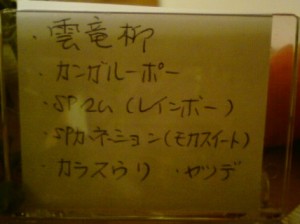 ・雲竜柳
・カンガルーポー
・SPマム(レインボー)
・SPカーネーション(モカスイート)
・カラスウリ ・ヤツデ